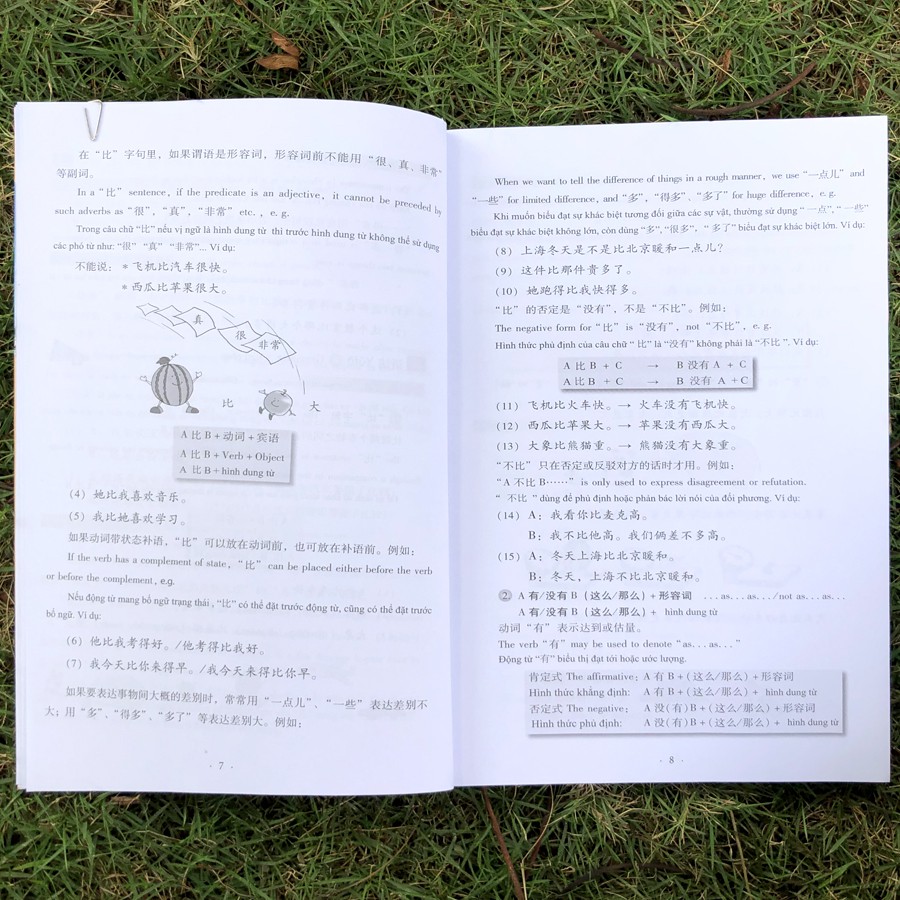 在“比”字句里，如果谓语是形容词，形容词前不能用“很、真、非常”
等副词。
In a “比” sentence, if the predicate is an adjective, it cannot be preceded by
such adverbs as “很”, “真”, “非常” etc., e. g.
Trong câu chữ “比” nếu vị ngữ là hình dung từ thì trước hình dung từ không thể sử dụng
các phó từ như: “很” “真” “非常”... Ví dụ:
不能说：*飞机比汽车很快。
*西瓜比苹果很大。
真
很
非常
比 大
A 比 B + 动词 + 宾语
A 比 B + Verb + Object
A 比 B + hình dung từ
(4) 她比我喜欢音乐。
(5) 我比她喜欢学习。
如果动词带状态补语，“比”可以放在动词前，也可放在补语前。例如：
If the verb has a complement of state, “比” can be placed either before the verb
or before the complement, e.g.
Nếu động từ mang bổ ngữ trạng thái, “比” có thể đặt trước động từ, cũng có thể đặt trước
bổ ngữ. Ví dụ:
(6) 他比我考得好。/他考得比我好。
(7) 我今天比你来得早。/我今天来得比你早。
如果要表达事物间大概的差别时，常常用“一点儿”、“一些”表达差别不
大；用“多”、“得多”、“多了”等表达差别大。例如：
· 7 ·
When we want to tell the difference of things in a rough manner, we use “一点儿” and
“一些” for limited difference, and “多”, “得多”、“多了” for huge difference, e. g.
Khi muốn biểu đạt sự khác biệt tương đối giữa các sự vật, thường sử dụng “一点”, “一些”
biểu đạt sự khác biệt không lớn, còn dùng “多”, “很多”, “多了” biểu đạt sự khác biệt lớn. Ví dụ:
(8) 上海冬天是不是比北京暖和一点儿？
(9) 这件比那件贵多了。
(10) 她跑得比我快得多。
“比”的否定是“没有”，不是“不比”。例如：
The negative form for “比” is “没有”, not “不比”, e. g.
Hình thức phủ định của câu chữ “比” là “没有” không phải là “不比”. Ví dụ:
A 比 B + C → B 没有 A + C
A 比 B + C → B 没有 A + C
(11) 飞机比火车快。→ 火车没有飞机快。
(12) 西瓜比苹果大。→ 苹果没有西瓜大。
(13) 大象比熊猫重。→ 熊猫没有大象重。
“不比”只在否定或反驳对方的话时才用。例如：
“A 不比 B……” is only used to express disagreement or refutation.
“不比” dùng để phủ định hoặc phản bác lời nói của đối phương. Ví dụ:
(14) A：我看你比麦克高。
B：我不比他高。我们俩差不多高。
(15) A：冬天上海比北京暖和。
B：冬天，上海不比北京暖和。
② A 有/没有 B（这么/那么）+ 形容词 ...as...as.../not as...as...
A 有/没有 B（这么/那么）+ hình dung từ
动词“有”表示达到或估量。
The verb “有” may be used to denote “as...as...”
Động từ “有” biểu thị đạt tới hoặc ước lượng.
肯定式 The affirmative: A 有 B +(这么/那么) + 形容词
Hình thức khẳng định: A 有 B +(这么/那么) + hình dung từ
否定式 The negative: A 没(有) B +(这么/那么) + 形容词
Hình thức phủ định: A 没(有) B +(这么/那么) + hình dung từ
· 8 ·